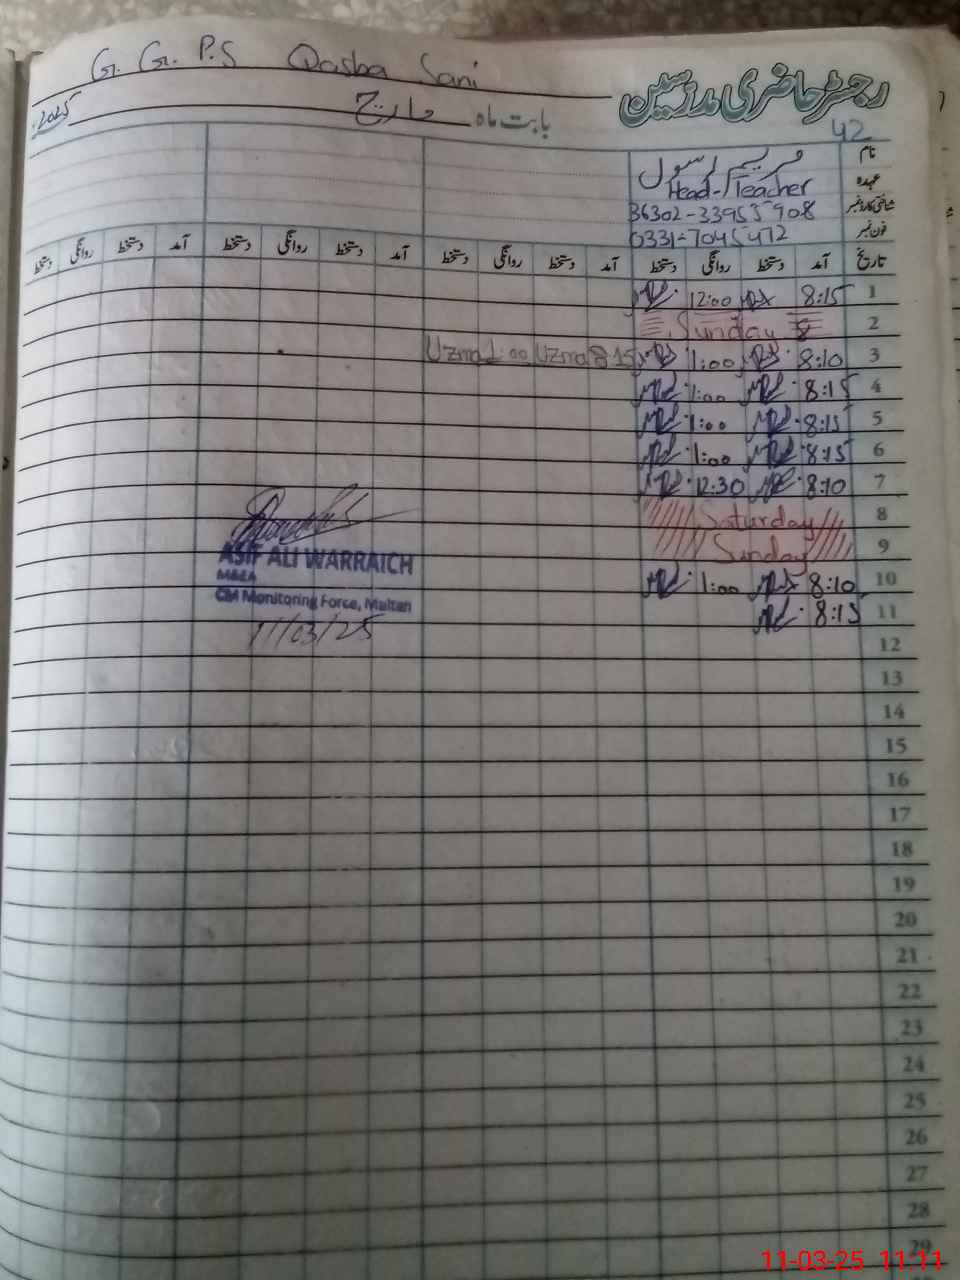 G. G. P.S Qasba Sani
رجسٹر حاضری مدرسین
2025 بابت ماہ مارچ
42
نام مریم رسول
عہدہ Head-Teacher
شناختی کارڈ نمبر
فون نمبر 0331-7045472
تاریخ آمد دستخط روانگی دستخط آمد دستخط روانگی دستخط آمد دستخط روانگی دستخط آمد دستخط روانگی دستخط
1 8:15 12:00
2 Sunday
3 8:10 1:00 8:15 Uzma 1:00 Uzma
4 8:15 1:00
5 8:15 1:00
6 8:15 1:00
7 8:10 12:30
8 Saturday
9 Sunday
10 8:10 1:00
11 8:15
ASIF ALI WARRAICH
M&EA
CM Monitoring Force, Multan
11/03/25
12
13
14
15
16
17
18
19
20
21
22
23
24
25
26
27
28
29
11-03-25 11:11